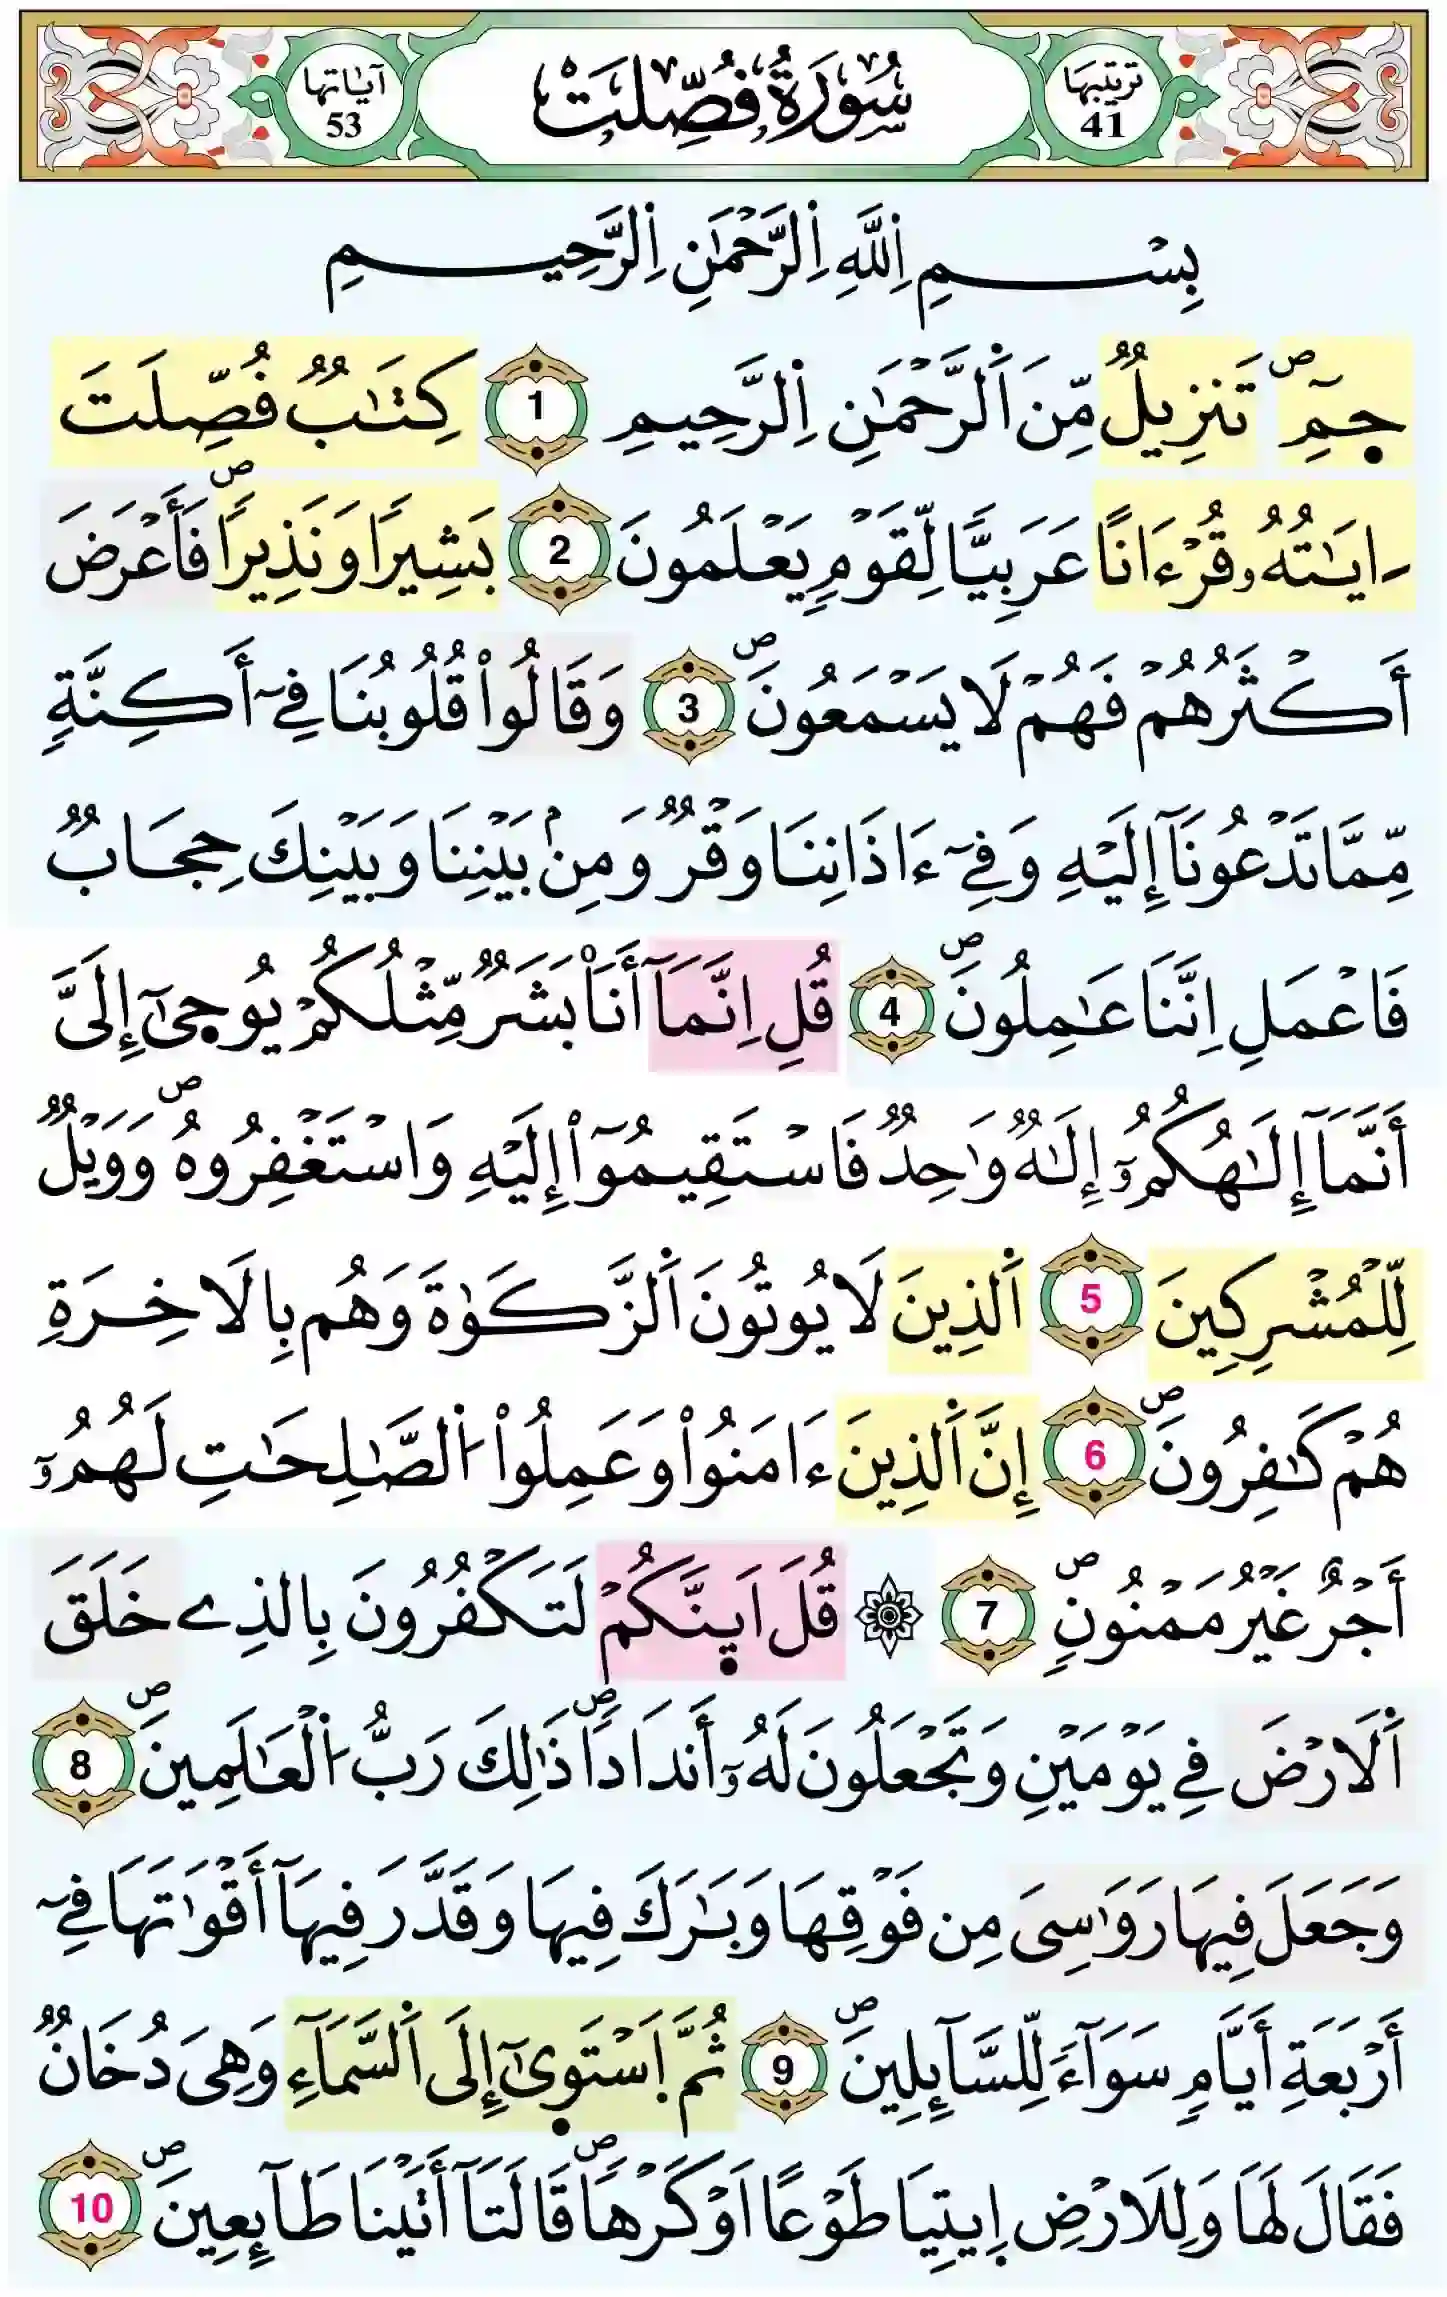 ترتيبها 41
سُورَةُ فُصِّلَتْ
آيَاتها 53
بِسْمِ اِللَّهِ اِلرَّحْمَٰنِ اِلرَّحِيمِ
حٓمِٓ ۖ تَنزِيلٌ مِّنَ اَلرَّحْمَٰنِ اِلرَّحِيمِ 1 كِتَٰبٌ فُصِّلَتَ
ـ ايَٰتُهُۥ قُرْءَاناً عَرَبِيّاً لِّقَوْمٍ يَعْلَمُونَ 2 بَشِيراً وَنَذِيراً ۖ فَأَعْرَضَ
أَكْثَرُهُمْ فَهُمْ لَا يَسْمَعُونَ ۖ 3 وَقَالُواْ قُلُوبُنَا فِےٓ أَكِنَّةٍ
مِّمَّا تَدْعُونَآ إِلَيْهِ وَفِےٓ ءَاذَانِنَا وَقْرٌ وَمِنۢ بَيْنِنَا وَبَيْنِكَ حِجَابٌ
فَاعْمَلِ اِنَّنَا عَٰمِلُونَ ۖ 4 قُلِ اِنَّمَآ أَنَا۠ بَشَرٌ مِّثْلُكُمْ يُوحٜيٰٓ إِلَيَّ
أَنَّمَآ إِلَٰهُكُمُۥٓ إِلَٰهٌ وَٰحِدٌ فَاسْتَقِيمُوٓاْ إِلَيْهِ وَاسْتَغْفِرُوهُ ۖ وَوَيْلٌ
لِّلْمُشْرِكِينَ 5 اَلذِينَ لَا يُوتُونَ اَلزَّكَوٰةَ وَهُم بِالَاخِرَةِ
هُمْ كَٰفِرُونَ ۖ 6 إِنَّ اَلذِينَ ءَامَنُواْ وَعَمِلُواْ اُلصَّٰلِحَٰتِ لَهُمُۥٓ
أَجْرٌ غَيْرُ مَمْنُونٍ ۖ 7 ۞ قُلَ اَئِنَّكُمْ لَتَكْفُرُونَ بِالذِے خَلَقَ
اَلَارْضَ فِے يَوْمَيْنِ وَتَجْعَلُونَ لَهُۥٓ أَندَاداً ۖ ذَٰلِكَ رَبُّ اُلْعَٰلَمِينَ ۖ 8
وَجَعَلَ فِيهَا رَوَٰسِيَ مِن فَوْقِهَا وَبَٰرَكَ فِيهَا وَقَدَّرَ فِيهَآ أَقْوَٰتَهَا فِےٓ
أَرْبَعَةِ أَيَّامٍ سَوَآءً لِّلسَّآئِلِينَ ۖ 9 ثُمَّ اَسْتَوٜيٰٓ إِلَى اَلسَّمَآءِ وَهِيَ دُخَانٌ
فَقَالَ لَهَا وَلِلَارْضِ اِيتِيَا طَوْعاً اَوْ كَرْهاً ۖ قَالَتَآ أَتَيْنَا طَآئِعِينَ ۖ 10